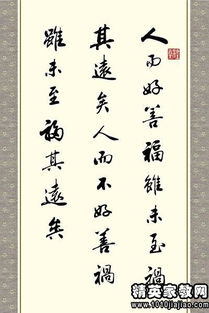 人而好善福雖未至禍
其遠矣人而不好善禍
雖未至福其遠矣
精英家教网
www.1010jiajiao.com